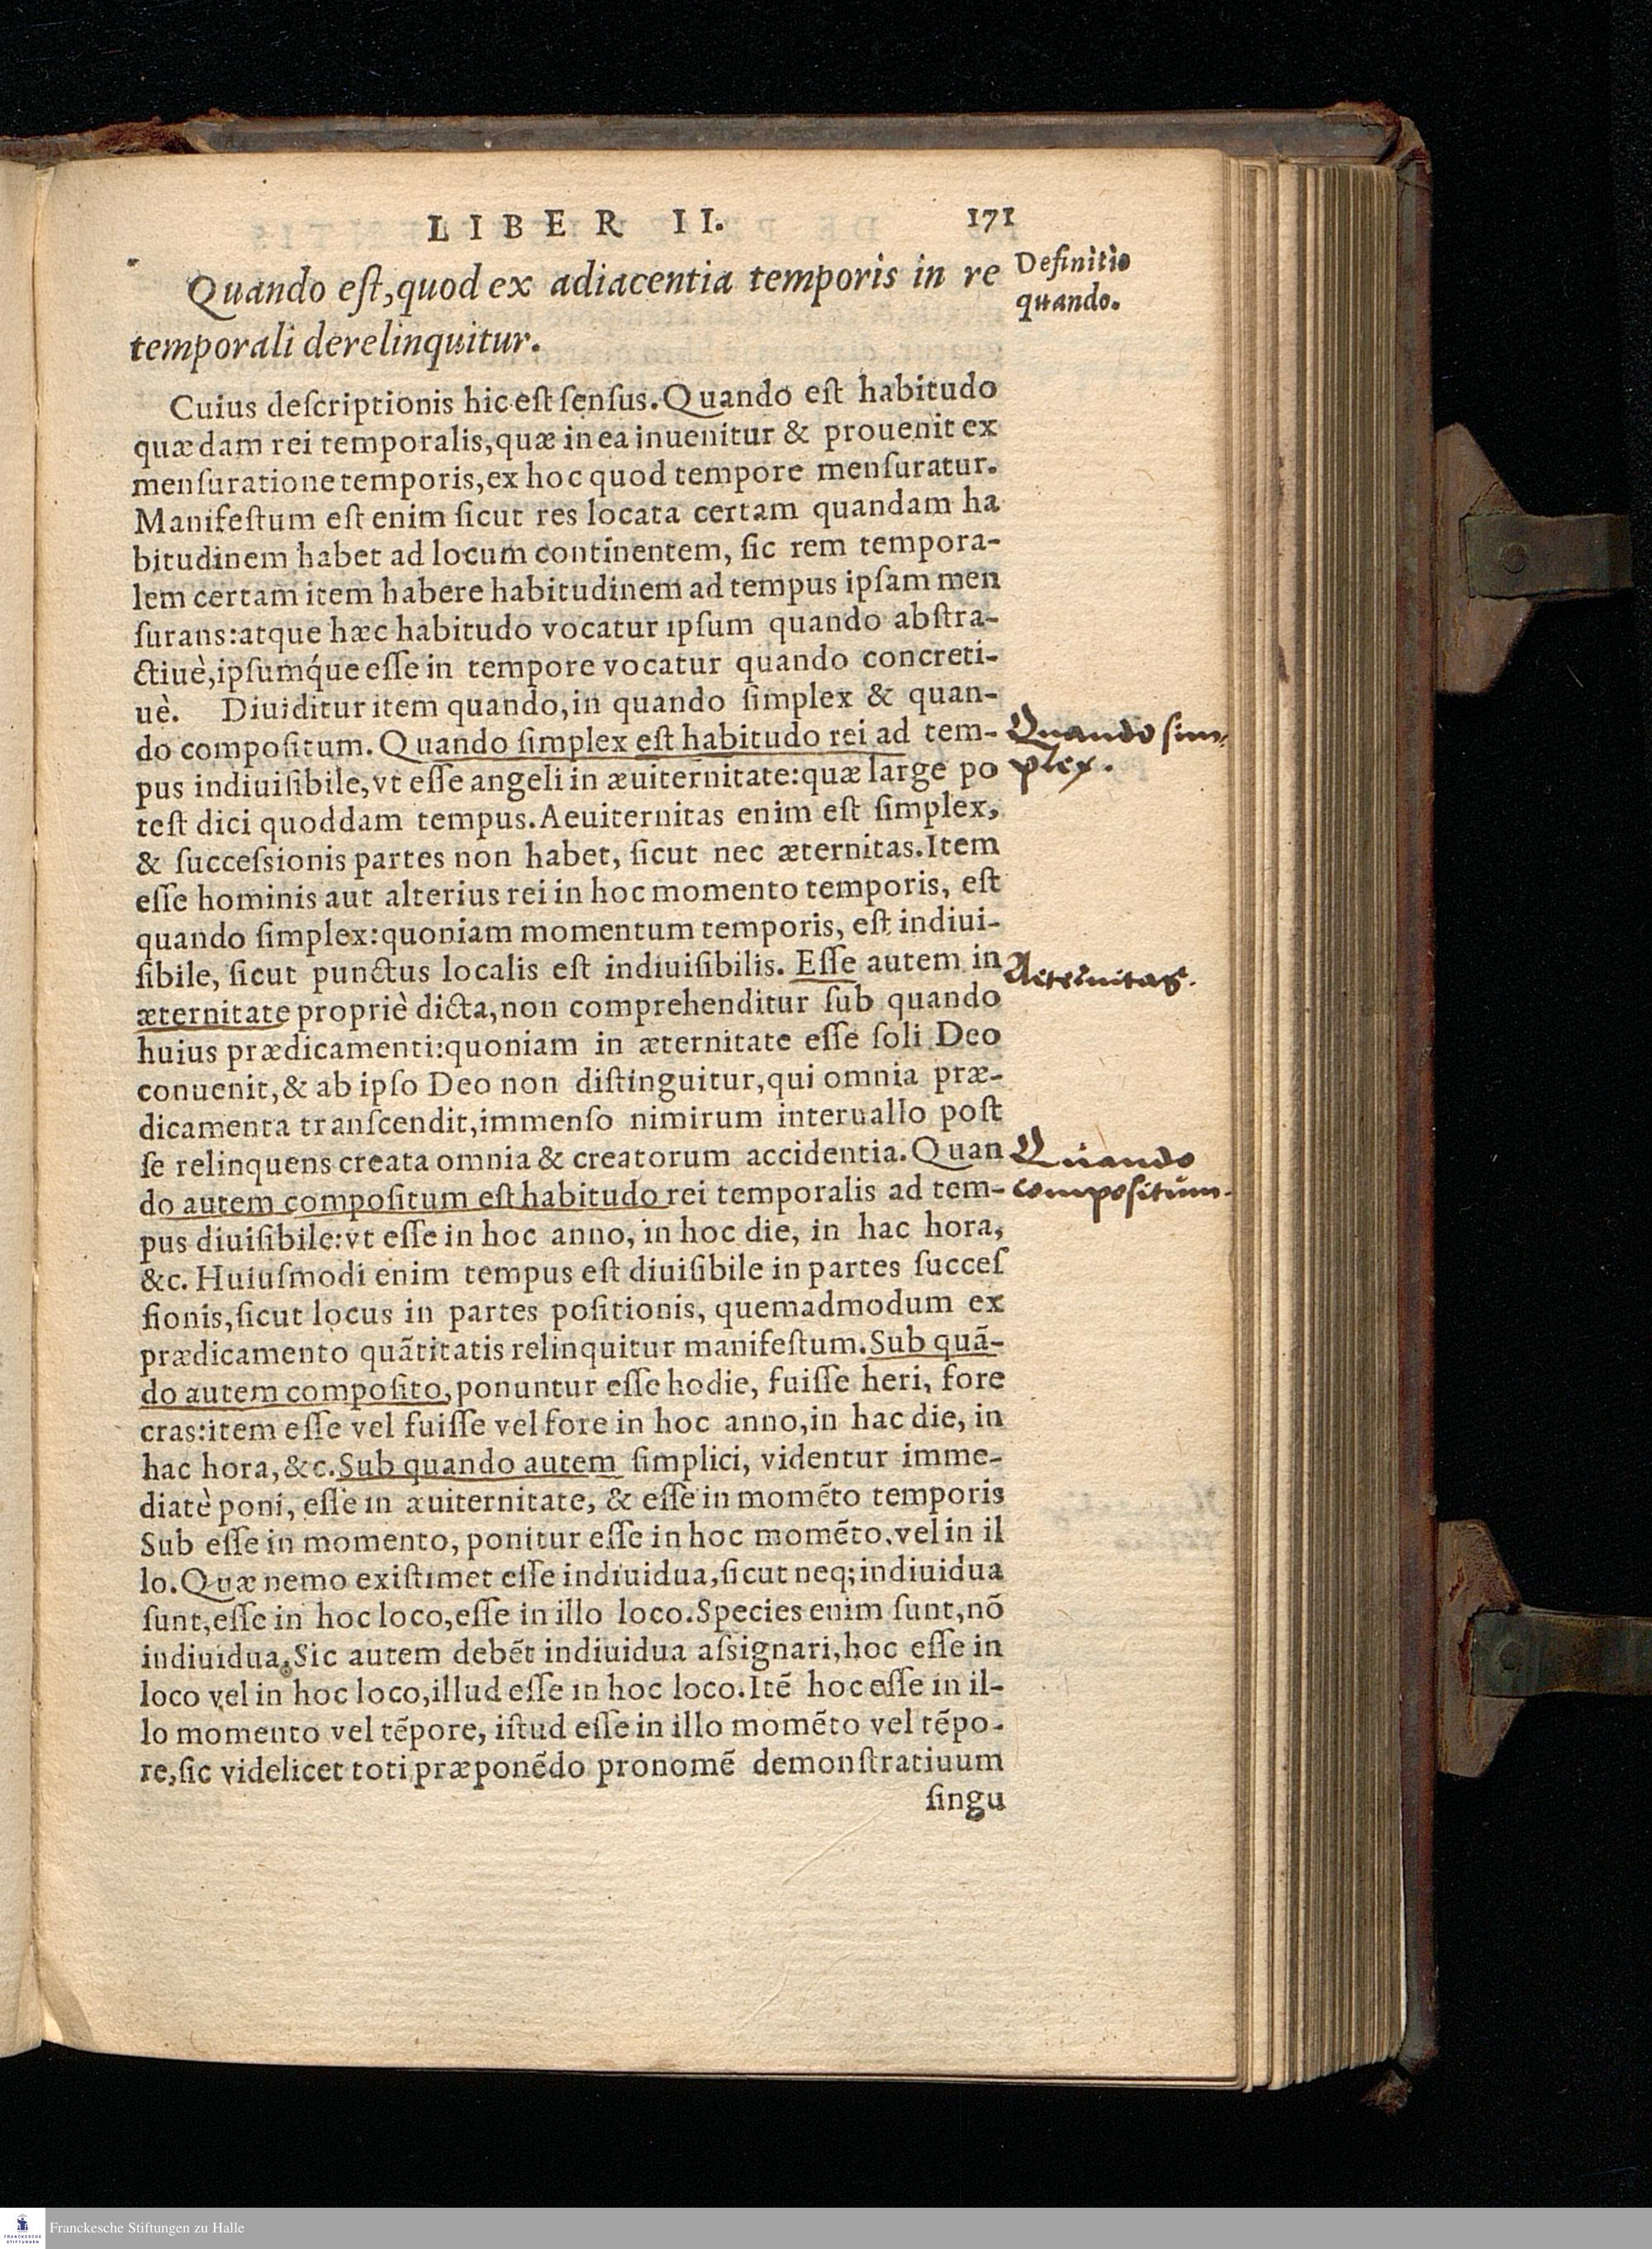 LIBER II. 171
Quando eſt, quod ex adiacentia temporis in re
temporali derelinquitur.
Definitio
quando.
Cuius deſcriptionis hic eſt ſenſus. Quando eſt habitudo
quædam rei temporalis, quæ in ea inuenitur & prouenit ex
menſuratione temporis, ex hoc quod tempore menſuratur.
Manifeſtum eſt enim ſicut res locata certam quandam ha
bitudinem habet ad locum continentem, ſic rem tempora-
lem certam item habere habitudinem ad tempus ipſam men
ſurans: atque hæc habitudo vocatur ipſum quando abſtra-
ctiuè, ipſumq́ue eſſe in tempore vocatur quando concreti-
uè. Diuiditur item quando, in quando ſimplex & quan-
do compoſitum. Quando ſimplex eſt habitudo rei ad tem-
Quando sim-
plex.
pus indiuiſibile, vt eſſe angeli in æuiternitate: quæ large po
teſt dici quoddam tempus. Aeuiternitas enim eſt ſimplex,
& ſucceſsionis partes non habet, ſicut nec æternitas. Item
eſſe hominis aut alterius rei in hoc momento temporis, eſt
quando ſimplex: quoniam momentum temporis, eſt indiui-
ſibile, ſicut punctus localis eſt indiuiſibilis. Eſſe autem in
Aeternitas.
æternitate propriè dicta, non comprehenditur ſub quando
huius prædicamenti: quoniam in æternitate eſſe ſoli Deo
conuenit, & ab ipſo Deo non diſtinguitur, qui omnia præ-
dicamenta tranſcendit, immenſo nimirum interuallo poſt
ſe relinquens creata omnia & creatorum accidentia. Quan
Quando
do autem compoſitum eſt habitudo rei temporalis ad tem-
compositum.
pus diuiſibile: vt eſſe in hoc anno, in hoc die, in hac hora,
&c. Huiuſmodi enim tempus eſt diuiſibile in partes ſucceſ
ſionis, ſicut locus in partes poſitionis, quemadmodum ex
prædicamento quãtitatis relinquitur manifeſtum. Sub quã-
do autem compoſito, ponuntur eſſe hodie, fuiſſe heri, fore
cras: item eſſe vel fuiſſe vel fore in hoc anno, in hac die, in
hac hora, &c. Sub quando autem ſimplici, videntur imme-
diatè poni, eſſe in æuiternitate, & eſſe in momẽto temporis
Sub eſſe in momento, ponitur eſſe in hoc momẽto, vel in il
lo. Quæ nemo exiſtimet eſſe indiuidua, ſicut neq; indiuidua
ſunt, eſſe in hoc loco, eſſe in illo loco. Species enim ſunt, nõ
indiuidua. Sic autem debẽt indiuidua aſsignari, hoc eſſe in
loco vel in hoc loco, illud eſſe in hoc loco. Itẽ hoc eſſe in il-
lo momento vel tẽpore, iſtud eſſe in illo momẽto vel tẽpo-
re, ſic videlicet toti præponẽdo pronomẽ demonſtratiuum
ſingu
FRANCKESCHE
STIFTUNGEN
Franckesche Stiftungen zu Halle